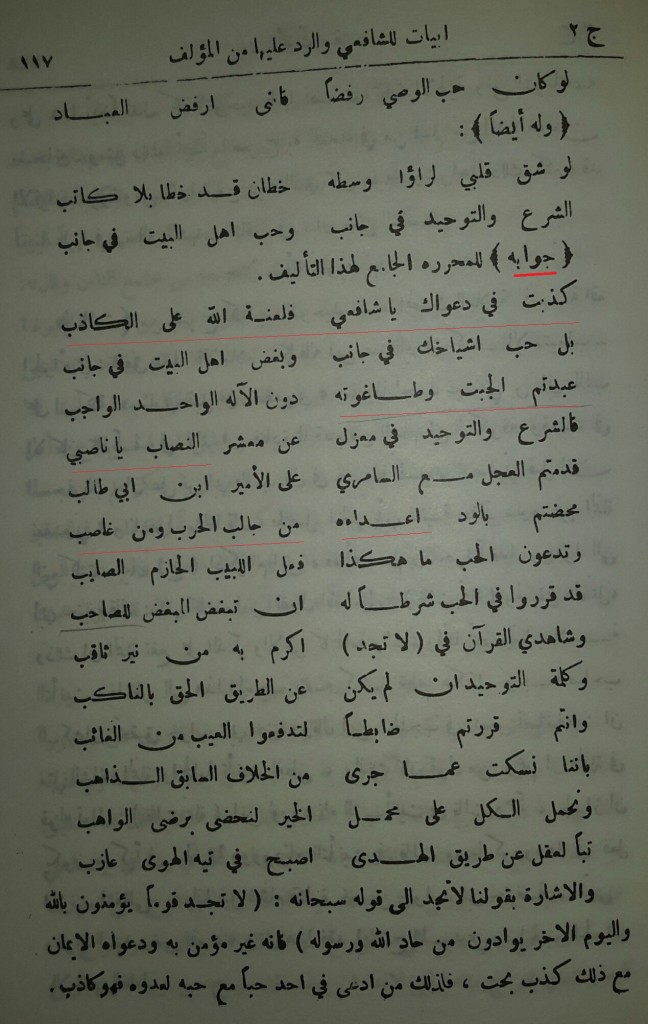 ج ٢ ابيات للشافعي والرد عليها من المؤلف ١١٧
لو كان حب الوصي رفضاً فانى ارفض العباد
﴿ وله أيضاً ﴾ :
لو شق قلبي لراؤا وسطه خطان قد خطا بلا كاتب
الشرع والتوحيد في جانب وحب اهل البيت في جانب
﴿ جوابه ﴾ للمحرره الجامع لهذا التأليف .
كذبت في دعواك يا شافعي فلعنة الله على الكاذب
بل حب اشياخك في جانب وبغض اهل البيت في جانب
عبدتم الجبت وطاغوته دون الآله الواحد الواجب
فالشرع والتوحيد في معزل عن معشر النصاب يا ناصبي
قدمتم العجل مع السامري على الأمير ابن ابي طالب
محضتم بالود اعداءه من جالب الحرب ومن غاصب
وتدعون الحب ما هكذا فعل اللبيب الحازم الصايب
قد قرروا في الحب شرطاً له ان تبغض المبغض للصاحب
وشاهدي القرآن في ( لا تجد ) اكرم به من نير ثاقب
وكلمة التوحيد ان لم يكن عن الطريق الحق بالناكب
وانتم قررتم ضابطاً لتدفعوا العيب من الغائب
باننا نسكت عما جرى من الخلاف السابق الذاهب
ونحمل الكل على محمل الخير لنحضى برضى الواهب
تباً لعقل عن طريق الهدى اصبح في تيه الهوى عازب
والاشارة بقولنا لا تجد الى قوله سبحانه : ( لا تجد قوماً يؤمنون بالله
واليوم الاخر يوادون من حاد الله ورسوله ) فانه غير مؤمن به ودعواه الايمان
مع ذلك كذب بحت ، فلذلك من ادعى في احد حباً مع حبه لعدوه فهو كاذب .